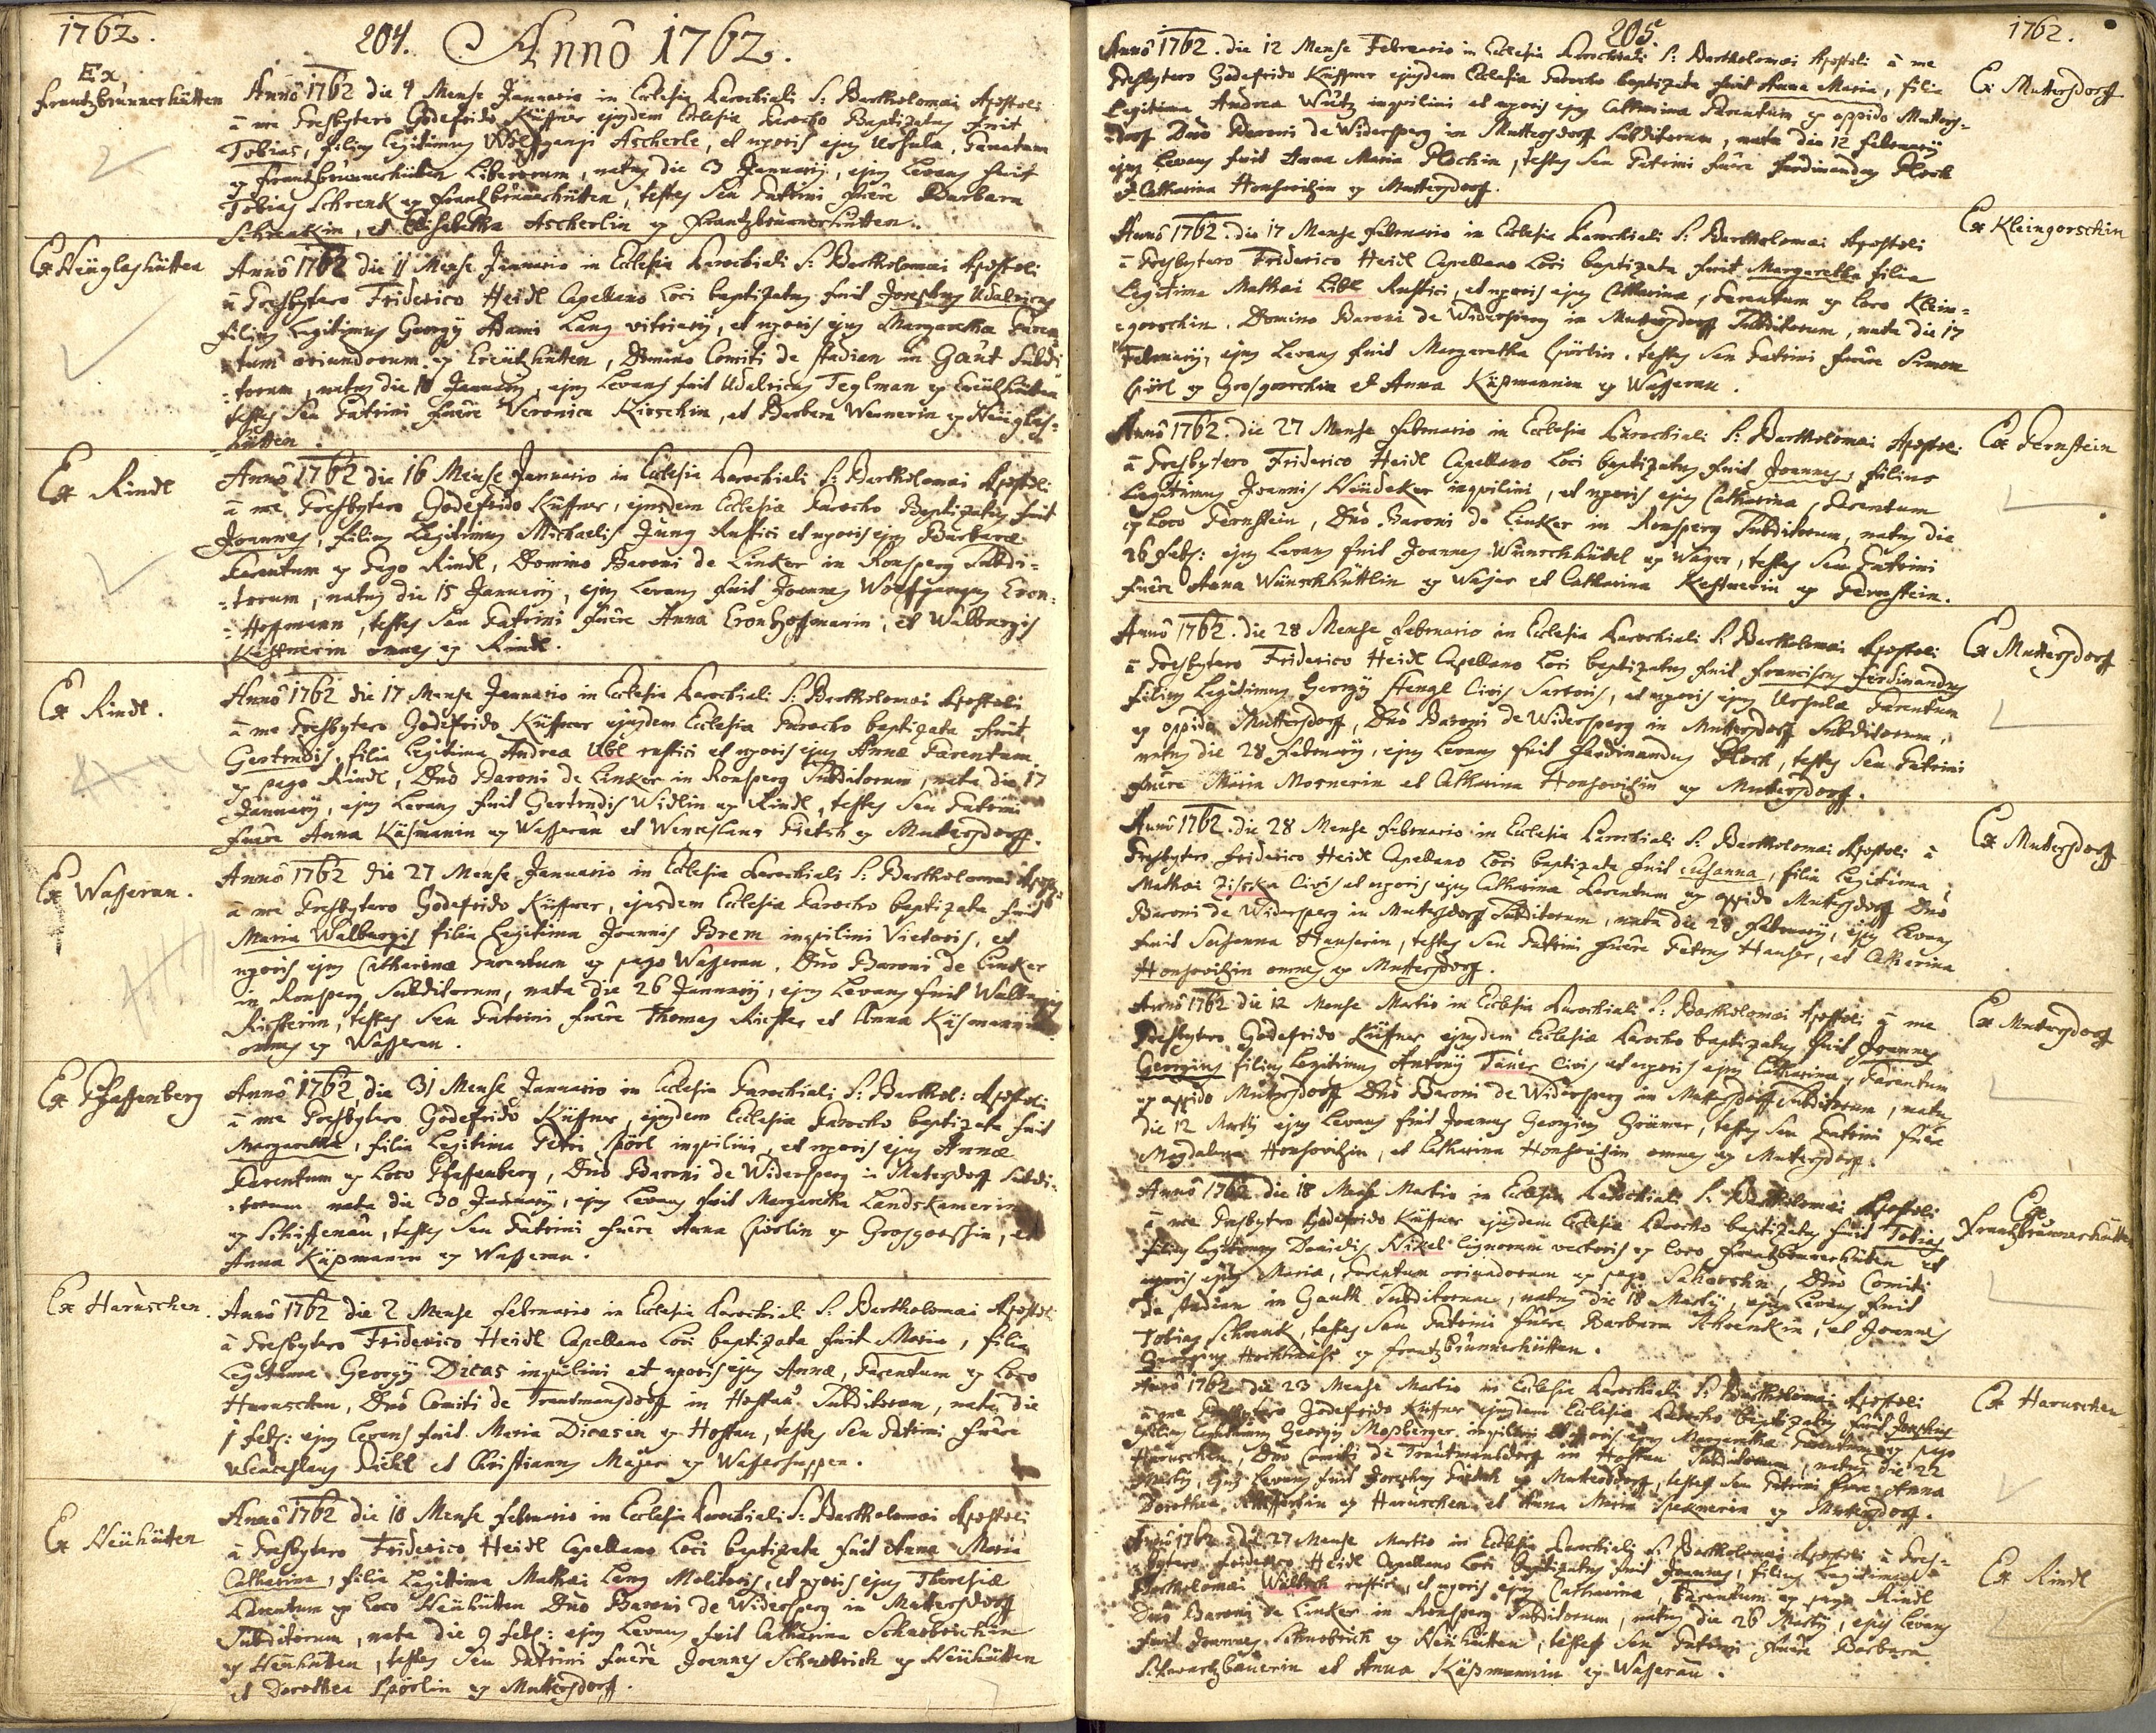 1762.
204. Annô 1762.
Ex
Frantzbrunnerhütten
Annô 1762 die 4 Mense Januario in Eclesia Parochiali S: Bartholomæi Apostoli
â me Presbytero Godefrido Küffner ejusdem Eclesiæ Parocho Baptizatus fuit
Tobias, filius legitimus Wolfgangi Ascherle, et uxoris ejus Ursula, Parentum
ex Frantzbrunnerhütten Liberorum, natus die 3 Januarij, ejus Levans fuit
Tobias Schrenk ex Frantzbrunnerhütten, testes seu Patrini fuêre Barbara
Schrenkin, et Elisabetha Ascherlin ex Frantzbrunnerhütten.
Ex Neüglashütten
Annô 1762 die 11 Mense Januario in Ecclesia Parochiali S: Bartholomæi Apostoli
â Presbytero Friderico Heidl Capellano Loci baptizatus fuit Josephus Udalricus
filius Legitimus Georgij Adami Lang vitriarij, et uxoris ejus Margaretha Paren
tum oriundorum ex Creützhütten, Domino Comiti de Stadian in Gaut Subdi
torum, natus die 10 Januarij, ejus Levans fuit Udalricus Teglman ex Creützhütten
testes seu Patrini fuêre Veronica Kirschin, et Barbara Wennerin ex Neüglas-
hütten.
Ex Rindl
Annô 1762 die 16 Mense Januario in Ecclesia Parochiali S: Bartholomæi Apostoli
â me Presbytero Godefrido Küffner, ejusdem Ecclesiæ Parocho Baptizatus fuit
Joannes, filius Legitimus Michaelis Jung Rustici et uxoris ejus Barbaræ
Parentum ex Pago Rindl, Domino Baroni de Linker in Ronsperg Subdi-
-torum, natus die 15 Januarij, ejus Levans fuit Joannes Wolfgangus Cron-
-Hoffmann, testes seu Patrini fuêre Anna Cronhofmanin, et Walburgis
Kestnerin omnes ex Rindl.
Ex Rindl.
Annô 1762 die 17 Mense Januario in Ecclesia Parochiali S: Bartholomæi Apostoli
â me Presbytero Godefrido Küffner ejusdem Ecclesiæ Parocho baptizata fuit
Gertrudis, filia legitima Andreæ Ubl rustici et uxoris ejus Annæ Parentum
ex pago Rindl, Dnô Baroni de Linker in Ronsperg Subditorum, nata die 17
Januarij, ejus Levans fuit Gertrudis Widlin ex Rindl, testes seu Patrini
fuêre Anna Käsmanin ex Wasseran et Wenceslaus Pietsch ex Muttersdorff.
Ex Wasseran.
Annô 1762 die 27 Mense Januario in Ecclesia Parochiali S: Bartholomæi Apostoli
â me Presbytero Godefrido Küffner, ejusdem Ecclesiæ Parocho baptizata fuit
Maria Walburgis filia Legitima Joannis Brem inquilini Vietoris, et
uxoris ejus Catharinæ Parentum ex pago Wasseran, Dnô Baroni de Linker
in Ronsperg Subditorum, nata die 26 Januarij, ejus Levans fuit Walburgis
Richterin, testes seu Patrini fuêre Thomas Richter et Anna Käsmannin
omnes ex Wasseran.
Ex Pfaffenberg
Annô 1762 die 31 Mense Januario in Ecclesia Parochiali S: Barthol: Apostoli
â me Presbytero Godefrido Küffner, ejusdem Ecclesiæ Parocho baptizata fuit
Margaretha, filia Legitima Petri Spörl inquilini, et uxoris ejus Annæ
Parentum ex Loco Pfaffenberg, Dnô Baroni de Widersperg in Mutersdorff Subdi-
-torum nata die 30 Januarij, ejus Levans fuit Margaretha Landskamerin
ex Schiffenau, testes seu Patrini fuêre Anna Spörlin ex Grosgorschin, et
Anna Käsmanin ex Wasseran.
Ex Haruschen
Annô 1762 die 2 Mense Februario in Ecclesia Parochiali S: Bartholomæi Apostoli
â Presbytero Friderico Heidl Capellano Loci baptizata fuit Maria, filia
Legitima Georgij Dicas inquilini et uxoris ejus Annæ, Parentum ex Loco
Haruschen, Dnô Comiti de Trautmansdorff in Hostau Subditorum, nata die
1 feb: ejus Levans fuit Maria Dicasin ex Hostau, testes seu Patrini fuêre
Wenceslaus Piehl et Christianus Majer ex Wassersuppen.
Ex Neühütten
Annô 1762 die 10 Mense februario in Ecclesia Parochiali S: Bartholomæi Apostoli
â Presbytero Friderico Heidl Capellano Loci baptizata fuit Anna Maria
Catharina, filia Legitima Mathæi Lang Molitoris, et uxoris ejus Theresiæ
Parentum ex loco Neühütten Dnô Baroni de Widersperg in Muttersdorff
Subditorum, nata die 9 feb: ejus Levans fuit Catharina Schnobrichin
ex Neühütten, testes seu Patrini fuêre Joannes Schnobrich ex Neühütten
et Dorothea Spörlin ex Muttersdorff.
205
1762.
Annô 1762. die 12 Mense Februario in Ecclesia Parochiali S: Bartholomæi Apostoli â me
Presbytero Godefrido Küffner ejusdem Ecclesiæ Parocho baptizata fuit Anna Maria, filia
Legitima Andreæ Wutz inquilini et uxoris ejus Catharinæ Parentum ex oppido Mutters-
dorff Dnô Baroni de Widersperg in Muttersdorff Subditorum, nata die 12 februarij
ejus Levans fuit Anna Maria Plochin, testes seu Patrini fuêre Ferdinandus Ploch
et Catharina Honsowitzin ex Muttersdorff.
Ex Muttersdorff
Annô 1762. die 17 Mense februario in Ecclesia Parochiali S: Bartholomæi Apostoli
â Presbytero Friderico Heidl Capellano Loci baptizata fuit Margaretha filia
Legitima Mathæi Libl Rustici, et uxoris ejus Catharinæ, Parentum ex loco Klein-
-gorschin. Domino Baroni de Widersperg in Muttersdorff Subditorum, nata die 17
Februarij, ejus Levans fuit Margaretha Spörlin. testes seu Patrini fuêre Simon
Spörl ex Grosgorschin et Anna Käsmannin ex Wasseran.
Ex Kleingorschin
Annô 1762. die 27 Mense februario in Ecclesia Parochiali S: Bartholomæi Apostoli
â Presbytero Friderico Heidl Capellano Loci baptizatus fuit Joannes, filius
Legitimus Joannis Neüdeker inquilini, et uxoris ejus Catharinæ, Parentum
ex Loco Pernstein, Dnô Baroni de Linker in Ronsperg Subditorum, natus die
26 feb: ejus Levans fuit Joannes Wunschhüttl ex Wager, testes seu Patrini
fuêre Anna Wunschhüttlin ex Wager et Catharina Kestnerin ex Pernstein.
Ex Pernstein
Annô 1762. die 28 Mense februario in Ecclesia Parochiali S: Bartholomæi Apostoli
â Presbytero Friderico Heidl Capellano Loci baptizatus fuit Franciscus Ferdinandus
filius Legitimus Georgij Stengl Civis Sartoris, et uxoris ejus Ursulæ Parentum
ex oppido Muttersdorff, Dnô Baroni de Widersperg in Muttersdorff Subditorum,
natus die 28 februarij, ejus Levans fuit Ferdinandus Ploch, testes seu Patrini
fuêre Maria Mosnerin et Catharina Honsowitzin ex Muttersdorff.
Ex Muttersdorff
Annô 1762. die 28 Mense februario in Ecclesia Parochiali S: Bartholomæi Apostoli â
Presbytero friderico Heidl Capellano Loci baptizata fuit Susanna, filia Legitima
Mathæi Zischka Civis et uxoris ejus Catharinæ Parentum ex oppido Mutersdorff Dnô
Baroni de Widersperg in Mutersdorff Subditorum, nata die 28 februarij, ejus Levans
fuit Susanna Hauserin, testes seu Patrini fuêre Petrus Hauser, et Catharina
Honsowitzin omnes ex Muttersdorff.
Ex Muttersdorff
Annô 1762 die 12 Mense Martio in Ecclesia Parochiali S: Bartholomæi Apostoli â me
Presbytero Godefrido Küffner ejusdem Ecclesiæ Parocho baptizatus fuit Joannes
Georgius filius Legitimus Antonij Taner Civis et uxoris ejus Catharinæ, Parentum
ex oppido Mutersdorff Dnô Baroni de Widersperg in Mutersdorff Subditorum, natus
die 12 Martij ejus Levans fuit Joannes Georgius Krämer, testes seu Patrini fuêre
Magdalena Honsowitzin, et Catharina Honsowitzin omnes ex Mutersdorff.
Ex Mutersdorff
Annô 1762 die 18 Mense Martio in Ecclesia Parochiali S: Bartholomæi Apostoli
â me Presbytero Godefrido Küffner ejusdem Ecclesiæ Parocho baptizatus fuit Tobias
filius Legitimus Davidis Nikel lignorum vectoris ex loco Frantzbrunnerhütten et
uxoris ejus Mariæ, Parentum oriundorum ex pago Sakorshn, Dnô Comiti
de Stadian in Gauth Subditorum, natus die 18 Martij, ejus Levans fuit
Tobias Schrenk, testes seu Patrini fuêre Barbara Schrenkin, et Joannes
Georgius ex Frantzbrunnerhütten.
Ex
Frantzbrunnerhütten
Annô 1762 die 23 Mense Martio in Ecclesia Parochiali S: Bartholomæi Apostoli
â me Presbytero Godefrido Küffner ejusdem Ecclesiæ Parocho baptizatus fuit Josephus
filius Legitimus Georgij Mosberger inquilini et uxoris ejus Margaretha Parentum ex pago
Haruschen, Dnô Comiti de Trautmansdorff in Hostau Subditorum, natus die 22
Martij, ejus Levans fuit Josephus Pietsch ex Muttersdorff, testes seu Patrini fuêre Anna
Dorothea ex Haruschen, et Anna Maria Speknerin ex Mutersdorff.
Ex Haruschen
Annô 1762 die 27 Mense Martio in Ecclesia Parochiali S: Bartholomæi Apostoli â Pres-
bytero friderico Heidl Capellano Loci baptizatus fuit Joannes, filius Legitimus
Bartholomæi rustici, et uxoris ejus Catharinæ, Parentum ex pago Rindl
Dnô Baroni de Linker in Ronsperg Subditorum, natus die 26 Martij, ejus Levans
fuit Joannes Schnobrich ex Neühütten, testes seu Patrini fuêre Barbara
Schwartzbauerin et Anna Käsmannin ex Wasserau.
Ex Rindl